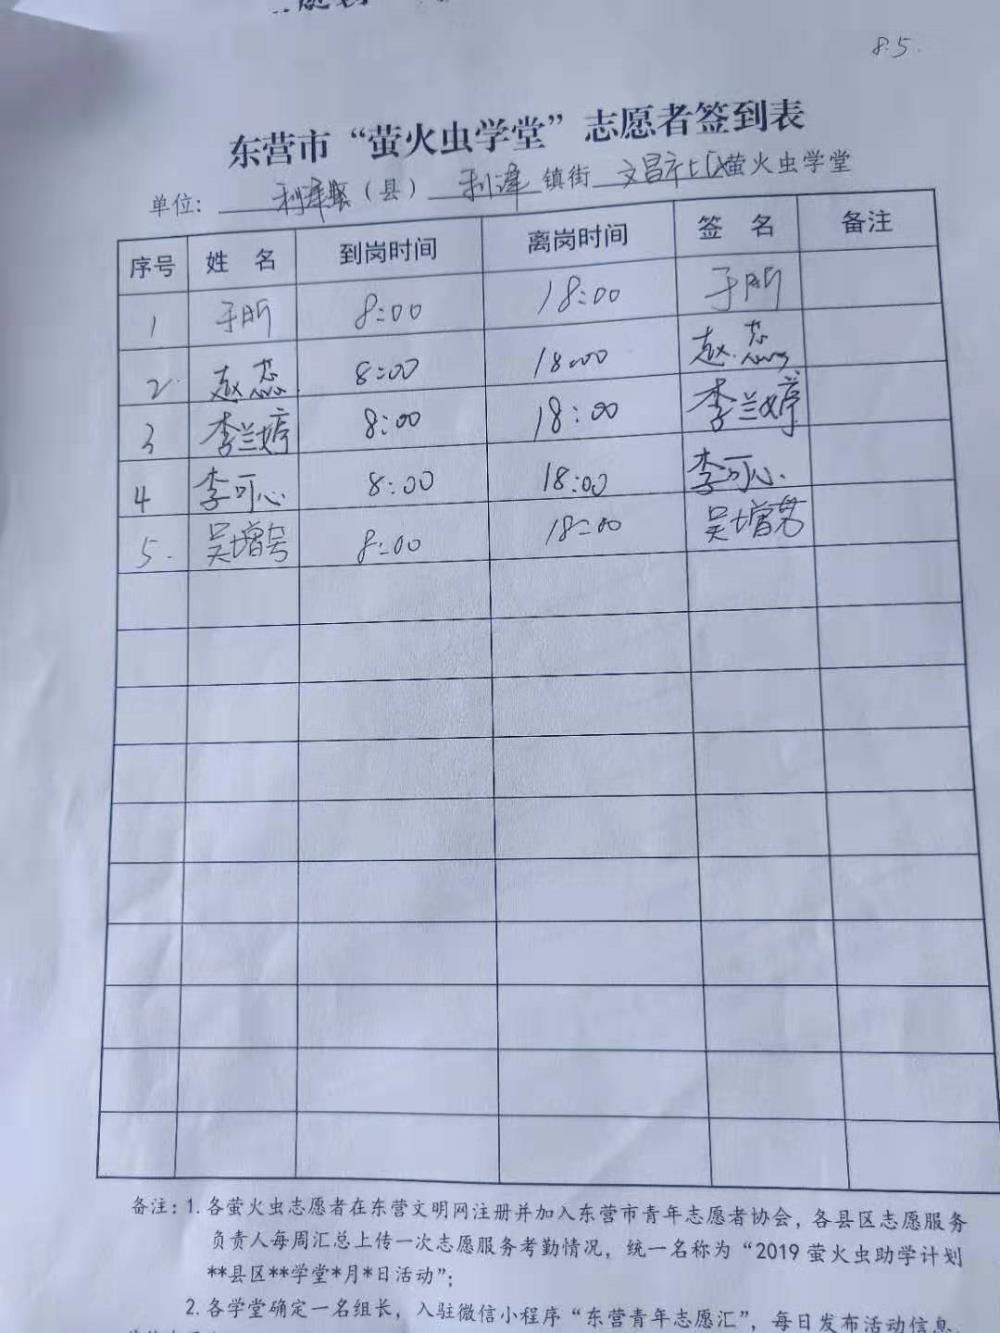 8.5.
东营市“萤火虫学堂”志愿者签到表
单位: 利津县（县） 利津 镇街 文昌社区萤火虫学堂
序号 姓 名 到岗时间 离岗时间 签 名 备注
1 于昕 8:00 18:00 于昕
2 赵蕊 8:00 18:00 赵蕊
3 李兰婷 8:00 18:00 李兰婷
4 李可心 8:00 18:00 李可心
5. 吴增 8:00 18:00 吴增
备注: 1. 各萤火虫志愿者在东营文明网注册并加入东营市青年志愿者协会，各县区志愿服务
负责人每周汇总上传一次志愿服务考勤情况，统一名称为“2019 萤火虫助学计划
**县区**学堂*月*日活动”;
2. 各学堂确定一名组长，入驻微信小程序“东营青年志愿汇”，每日发布活动信息，